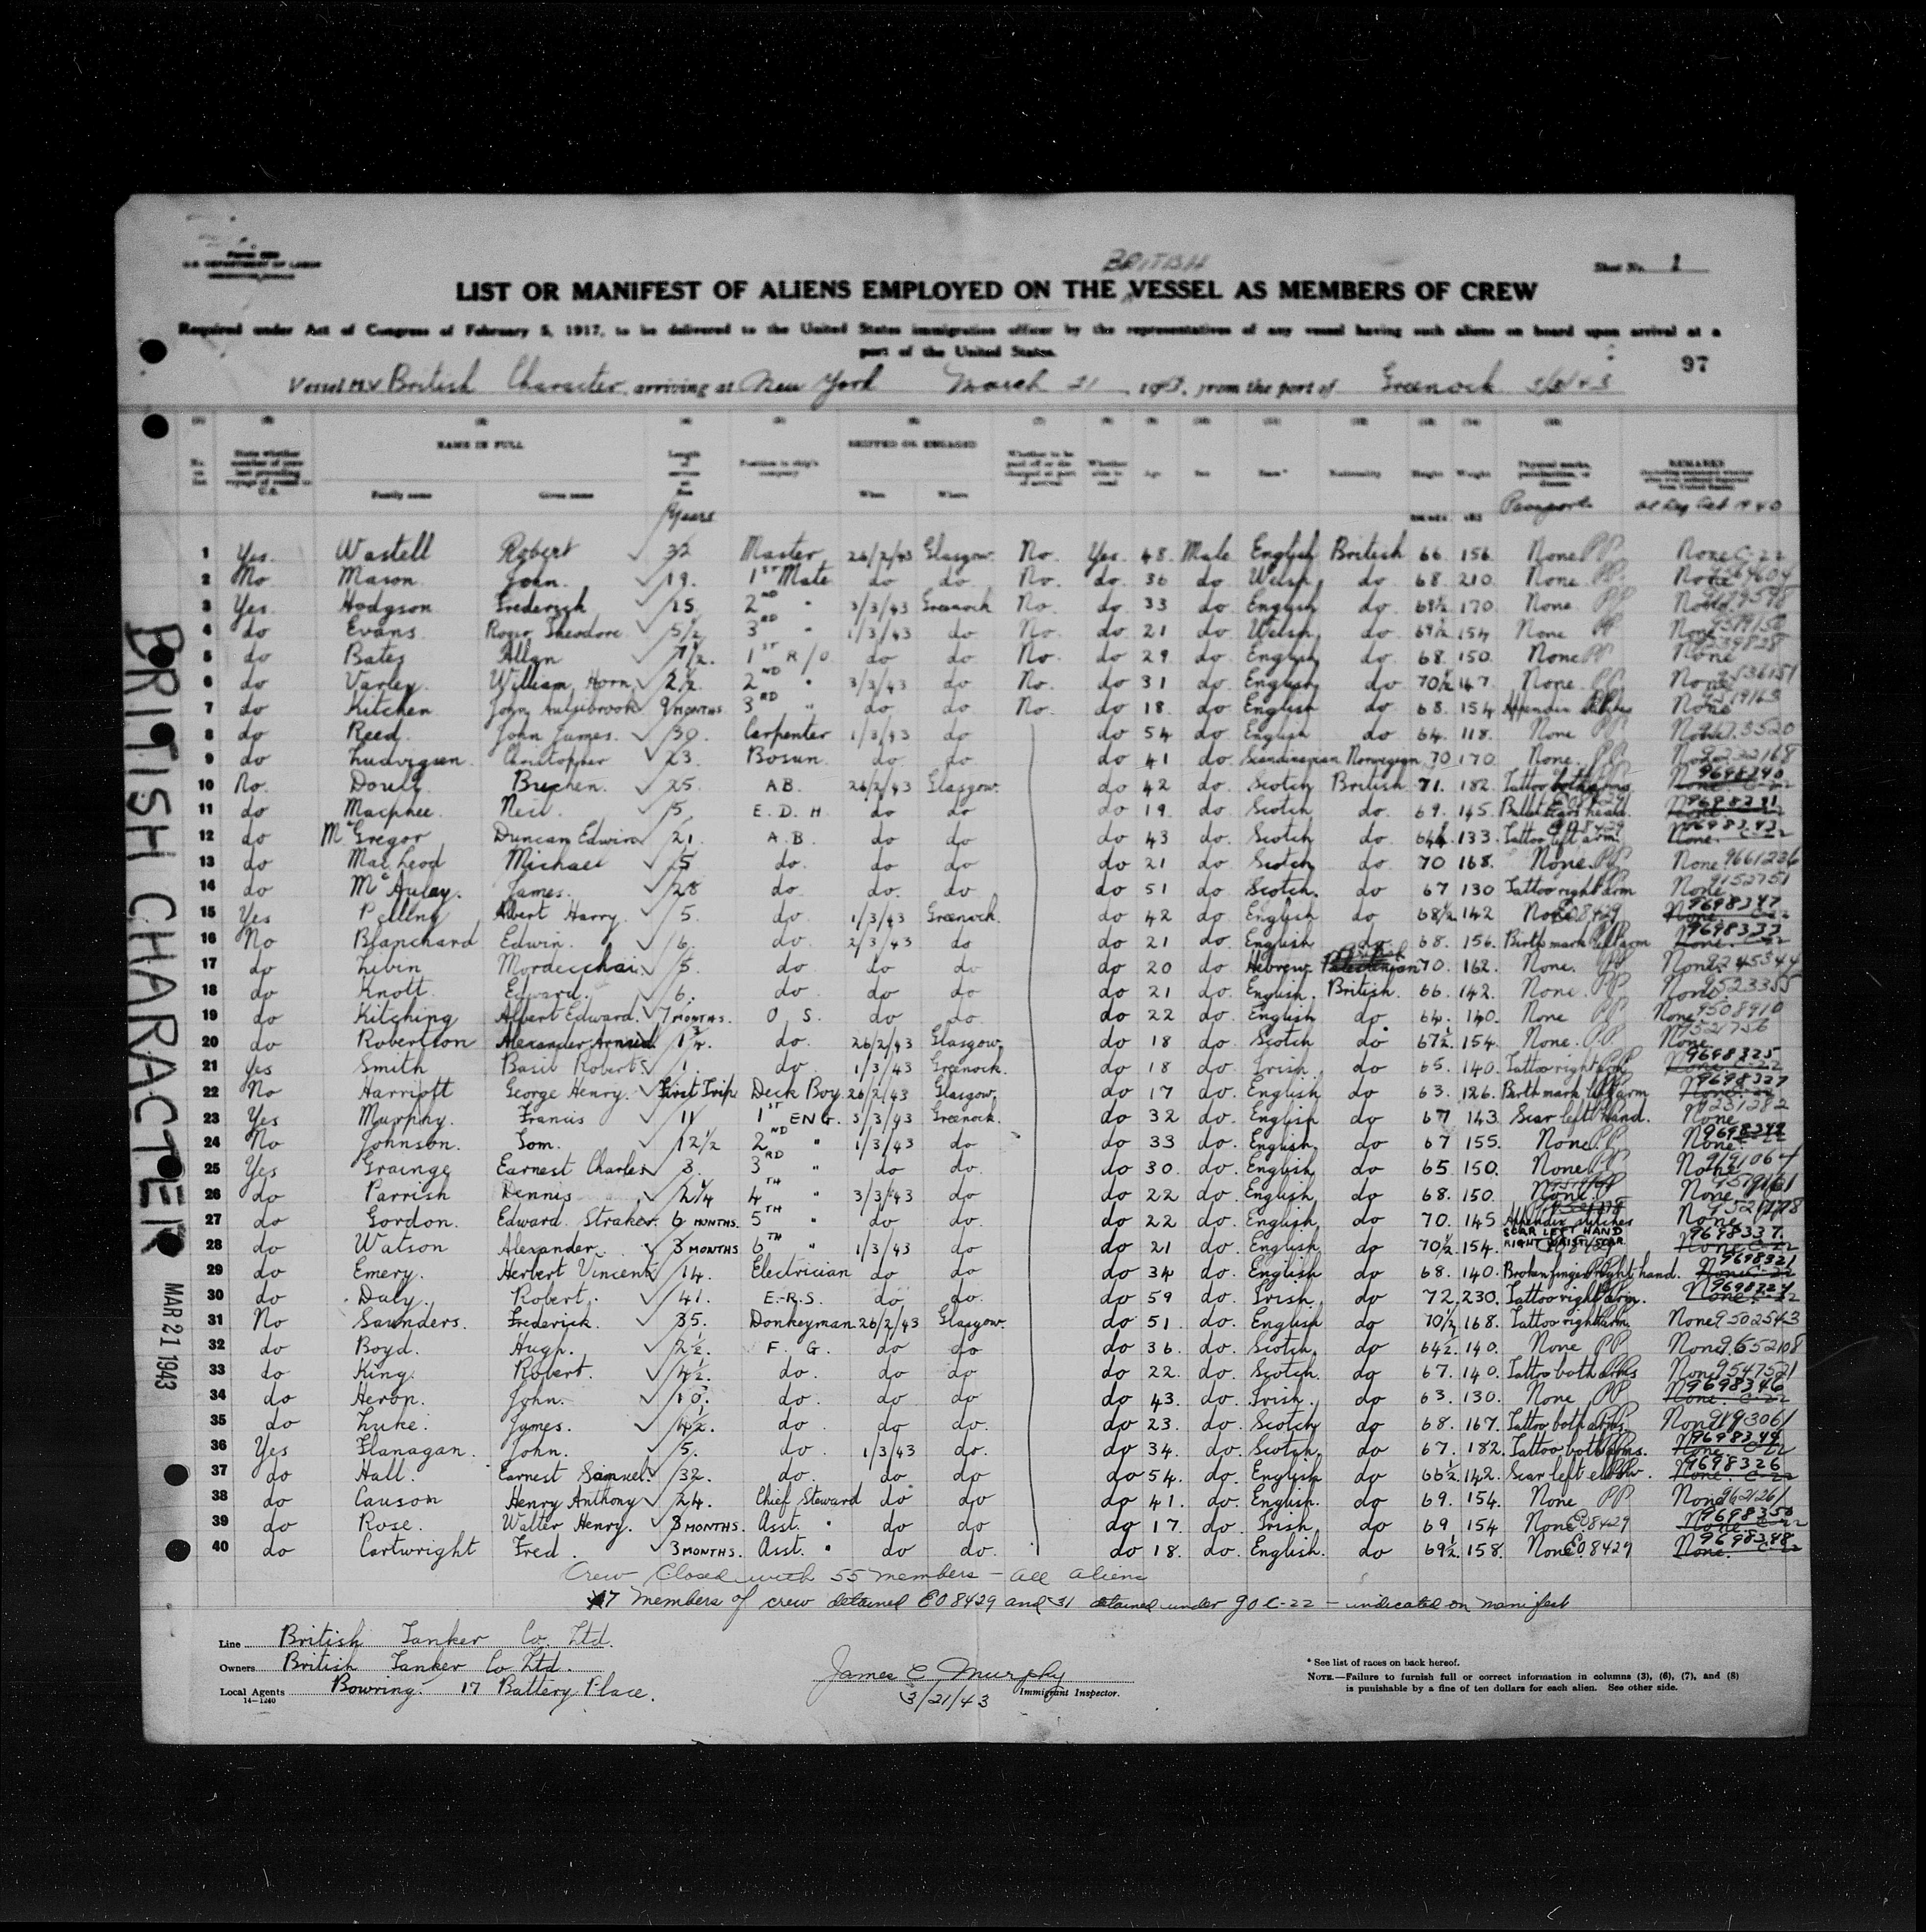 U.S. DEPARTMENT OF LABOR
BRITISH
Sheet No. 1
LIST OR MANIFEST OF ALIENS EMPLOYED ON THE VESSEL AS MEMBERS OF CREW
Required under Act of Congress of February 5, 1917, to be delivered to the United States immigration officer by the representatives of any vessel having such aliens on board upon arrival at a
port of the United States.
97
Vessel M.V British Character, arriving at New York March 21, 1943, from the port of Greenock
NAME IN FULL SHIPPED OR ENGAGED
Family name Given name Position in ship's company When Where Age Sex Race* Nationality Height Weight REMARKS
Years Passport
1 Yes. Wastell Robert 32 Master 26/2/43 Glasgow. No. Yes. 48. Male English British 66 156 None PP None C-22
2 No. Mason John. 19. 1ST Mate do do. No. do. 36 do Welsh do 68. 210. None PP None
3 Yes Hodgson Frederick 15 2ND " 3/3/43 Greenock No. do 33 do. English do. 69½ 170. None PP None
4 do Evans. Roger Theodore 5½ 3RD " 1/3/43 do No. do 21 do Welsh do 69½ 154 None PP None
5 do Bates Allan 7½. 1ST R/O do do No. do 29 do English do 68. 150. None PP None
6 do Varley. William Horn 2½. 2ND " 3/3/43 do No. do 31 do. English do 70½ 147. None. PP None
7 do Kitchen John 9 MONTHS. 3RD " do do No. do 18. do English do 68. 154 Appendix None
8 do Reed. John James. 30. Carpenter 1/3/43 do do 54 do English do 64. 118. None PP None
9 do Ludvigsen Christopher 23. Bosun. do do do 41 do. Scandinavian Norwegian 70 170. None. PP None
10 No. Dowly Brechen. 25. A.B. 26/2/43 Glasgow. do 42 do Scotch British 71. 182. Tattoo both arms 9698340 None. C-22
11 do Macphee. Neil. 5. E.D.H. do do do 19 do. Scotch do. 69. 145. None.
12 do McGregor Duncan Edwin 21. A.B. do do do 43 do Scotch do. 133. Tattoo left arm None.
13 do MacLeod Michael 5 do. do do do 21 do Scotch do. 70 168. None. PP None. 9661236
14 do McAulay. James. 28 do. do. do do 51 do. Scotch. do 67 130 Tattoo right arm None 9152751
15 Yes Pelling Albert Harry. 5. do. 1/3/43 Greenock. do 42 do English do 68½ 142 None EO8429 9698347 None. C-22
16 No Blanchard Edwin. 6. do. 2/3/43 do do 21 do. English do. 68. 156. Birth mark left arm 9698333 None. C-22
17 do Libin Mordecchai 5. do do do do 20 do Hebrew. Palestinian 70. 162. None. PP None. 8245344
18 do Knott. Edward. 6. do do do do 21 do. English. British. 66. 142. None. PP None. 9523355
19 do Kitching Albert Edward. 7 MONTHS. O.S. do do do 22 do. English do 64. 140. None PP None 9508910
20 do Robertson Alexander 1¾. do. 26/2/43 Glasgow. do 18 do Scotch do 67½. 154. None. P.P. None
21 Yes Smith Basil Robert 1. do 1/3/43 Greenock. do 18 do. Irish. do 65. 140. Tattoo right arm 9698325 None. C-22
22 No Harriott George Henry. First Trip Deck Boy 26/2/43 Glasgow. do 17 do. English do 63. 126. Birth mark left arm 9698327 None.
23 Yes Murphy. Francis 11 1ST ENG. 3/3/43 Greenock. do 32 do. English do 67 143. Scar left hand. None
24 No Johnson. Tom. 12½ 2ND " 1/3/43 do do 33 do. English. do 67 155. None PP None.
25 Yes Grainge Earnest Charles 8. 3RD " do do. do 30. do. English do 65. 150. None PP None 9191067
26 do Parrish Dennis 2¼ 4TH " 3/3/43 do do 22 do. English, do 68. 150. None. PP None
27 do Gordon. Edward Straker. 6 MONTHS. 5TH " do do. do 22 do. English do 70. 145 Appendix stitches None
28 do Watson Alexander. 3 MONTHS 6TH " 1/3/43 do do 21 do. English do 70½. 154. SCAR LEFT HAND RIGHT WAIST SCAR 9698337. None C-22
29 do Emery. Herbert Vincent 14. Electrician do do do 34 do. English do 68. 140. Broken finger right hand. 9698321 None C-22
30 do Daly. Robert. 41. E.-R.S. do do. do 59 do. Irish. do 72. 230. Tattoo right arm. None. C-22
31 No Saunders. Frederick. 35. Donkeyman 26/2/43 Glasgow. do 51. do. English do 70½ 168. Tattoo right arm None 9502543
32 do Boyd. Hugh. 2½. F. G. do do do 36. do Scotch. do 64½. 140. None PP None 9652108
33 do King. Robert. 4½. do. do do do 22. do. Scotch do 67. 140. Tattoo both arms None 9547521
34 do Heron. John. 10. do do do do 43. do. Irish. do 63. 130. None PP 9698346 None. C-22
35 do Luke. James. 4½. do do do. do 23. do. Scotch do 68. 167. Tattoo both arms None 9193061
36 Yes Flanagan. John. 5. do. 1/3/43 do. do 34. do. Scotch. do 67. 182. Tattoo both arms. None C-22
37 do Hall. Earnest Samuel. 32. do. do do do 54. do. English do 66½. 142. Scar left elbow. 9698326 None. C-22
38 do Causon Henry Anthony 24. Chief Steward do do do 41. do. English. do 69. 154. None PP None 962126/
39 do Rose. Walter Henry. 8 MONTHS. Asst. " do do do 17. do. Irish do 69 154 None EO8429 9698350 None C-22
40 do Cartwright Fred. 3 MONTHS. Asst. " do do. do 18. do. English. do 69½. 158. None EO 8429 9698348 None. C-22
Crew Closed with 55 members - all aliens
17 members of crew detained EO 8429 and 31 detained under GO C-22 - indicated on manifest
Line British Tanker Co. Ltd.
Owners British Tanker Co Ltd.
Local Agents Bowring. 17 Battery Place.
14-1240
James C Murphy
3/21/43 Immigrant Inspector.
* See list of races on back hereof.
NOTE.—Failure to furnish full or correct information in columns (3), (6), (7), and (8)
is punishable by a fine of ten dollars for each alien. See other side.
BRITISH CHARACTER MAR 21 1943